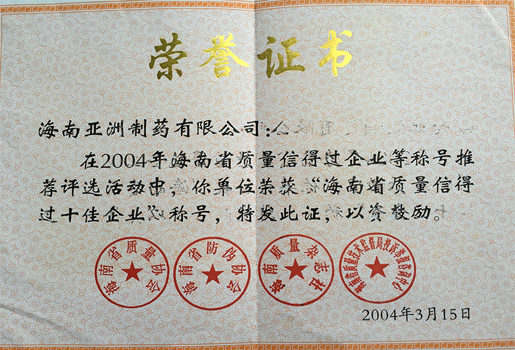 荣誉证书
海南亚洲制药有限公司：
在2004年海南省质量信得过企业等称号推
荐评选活动中，你单位荣获“海南省质量信得
过十佳企业”称号，特发此证，以资鼓励。
海南省质量协会
海南省防伪协会
海南质量杂志社
2004年3月15日